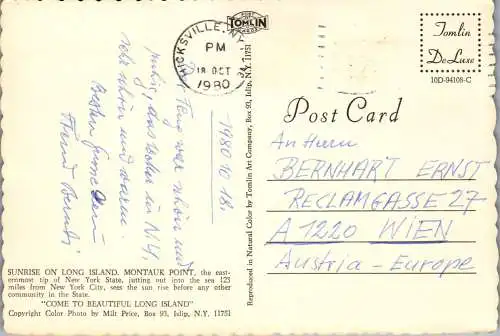 POST
TOMLIN
CARDS
HICKSVILLE, NY
PM
18 OCT
1980
Tomlin
DeLuxe
10D-94108-C
Post Card
1980 10 18.
Flug war schön und
ruhig, das Wetter in N.Y.
sehr schön und warm.
Besten Gruss
An Herrn
BERNHART ERNST
RECLAMGASSE 27
A 1220 WIEN
Austria - Europe
Reproduced in Natural Color by Tomlin Art Company, Box 93, Islip, N.Y. 11751
SUNRISE ON LONG ISLAND. MONTAUK POINT, the east-
ernmost tip of New York State, jutting out into the sea 125
miles from New York City, sees the sun rise before any other
community in the State.
"COME TO BEAUTIFUL LONG ISLAND"
Copyright Color Photo by Milt Price, Box 93, Islip, N.Y. 11751